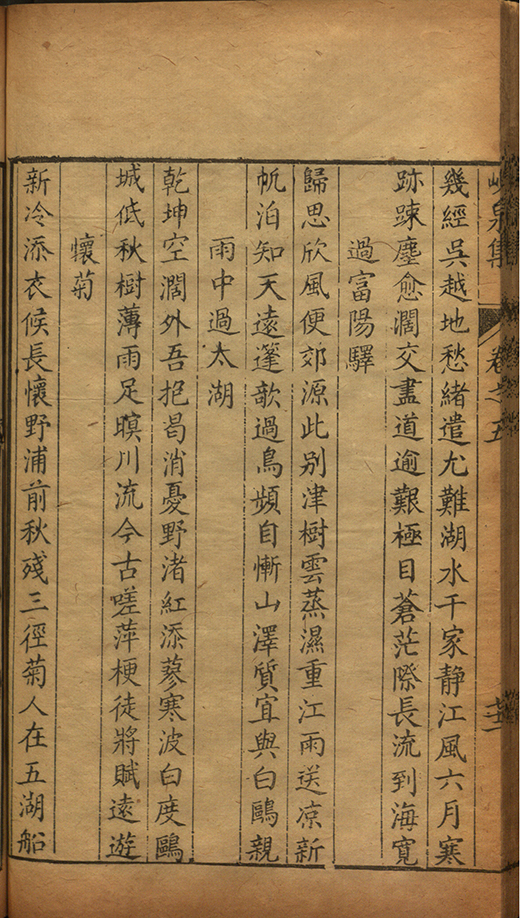 峴泉集 卷之五
幾經吳越地愁緒遣尤難湖水千家静江風六月寒
跡踈塵愈濶交盡道逾艱極目蒼茫際長流到海寬
過富陽驛
歸思欣風便郊源此别津樹雲蒸濕重江雨送凉新
帆泊知天遠篷歌過鳥頻自慚山澤質宜與白鷗親
雨中過太湖
乾坤空濶外吾抱曷消憂野渚紅添蓼寒波白度鷗
城低秋樹薄雨足暝川流今古嗟萍梗徒將賦遠遊
懷菊
新冷添衣候長懷野浦前秋殘三徑菊人在五湖船